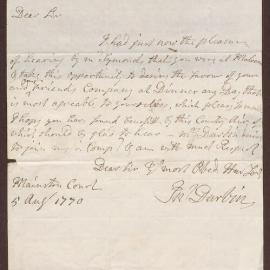 Dear Sir
I had just now the pleasure
of hearing by Mr Symond, that you were at Malvern
& take this opportunity to desire the favour of your
and friends Company at Dinner any Day that
is most agreeable to yourselves, which please to
I hope you have found benefit by this Country Air,
which I should be glad to hear - Mrs Darbin
to join my Comps & am with much Respect
Dear Sir Yr most Obed Hum Serv
Mainston Court
5 Augt 1770
Thos Darbin